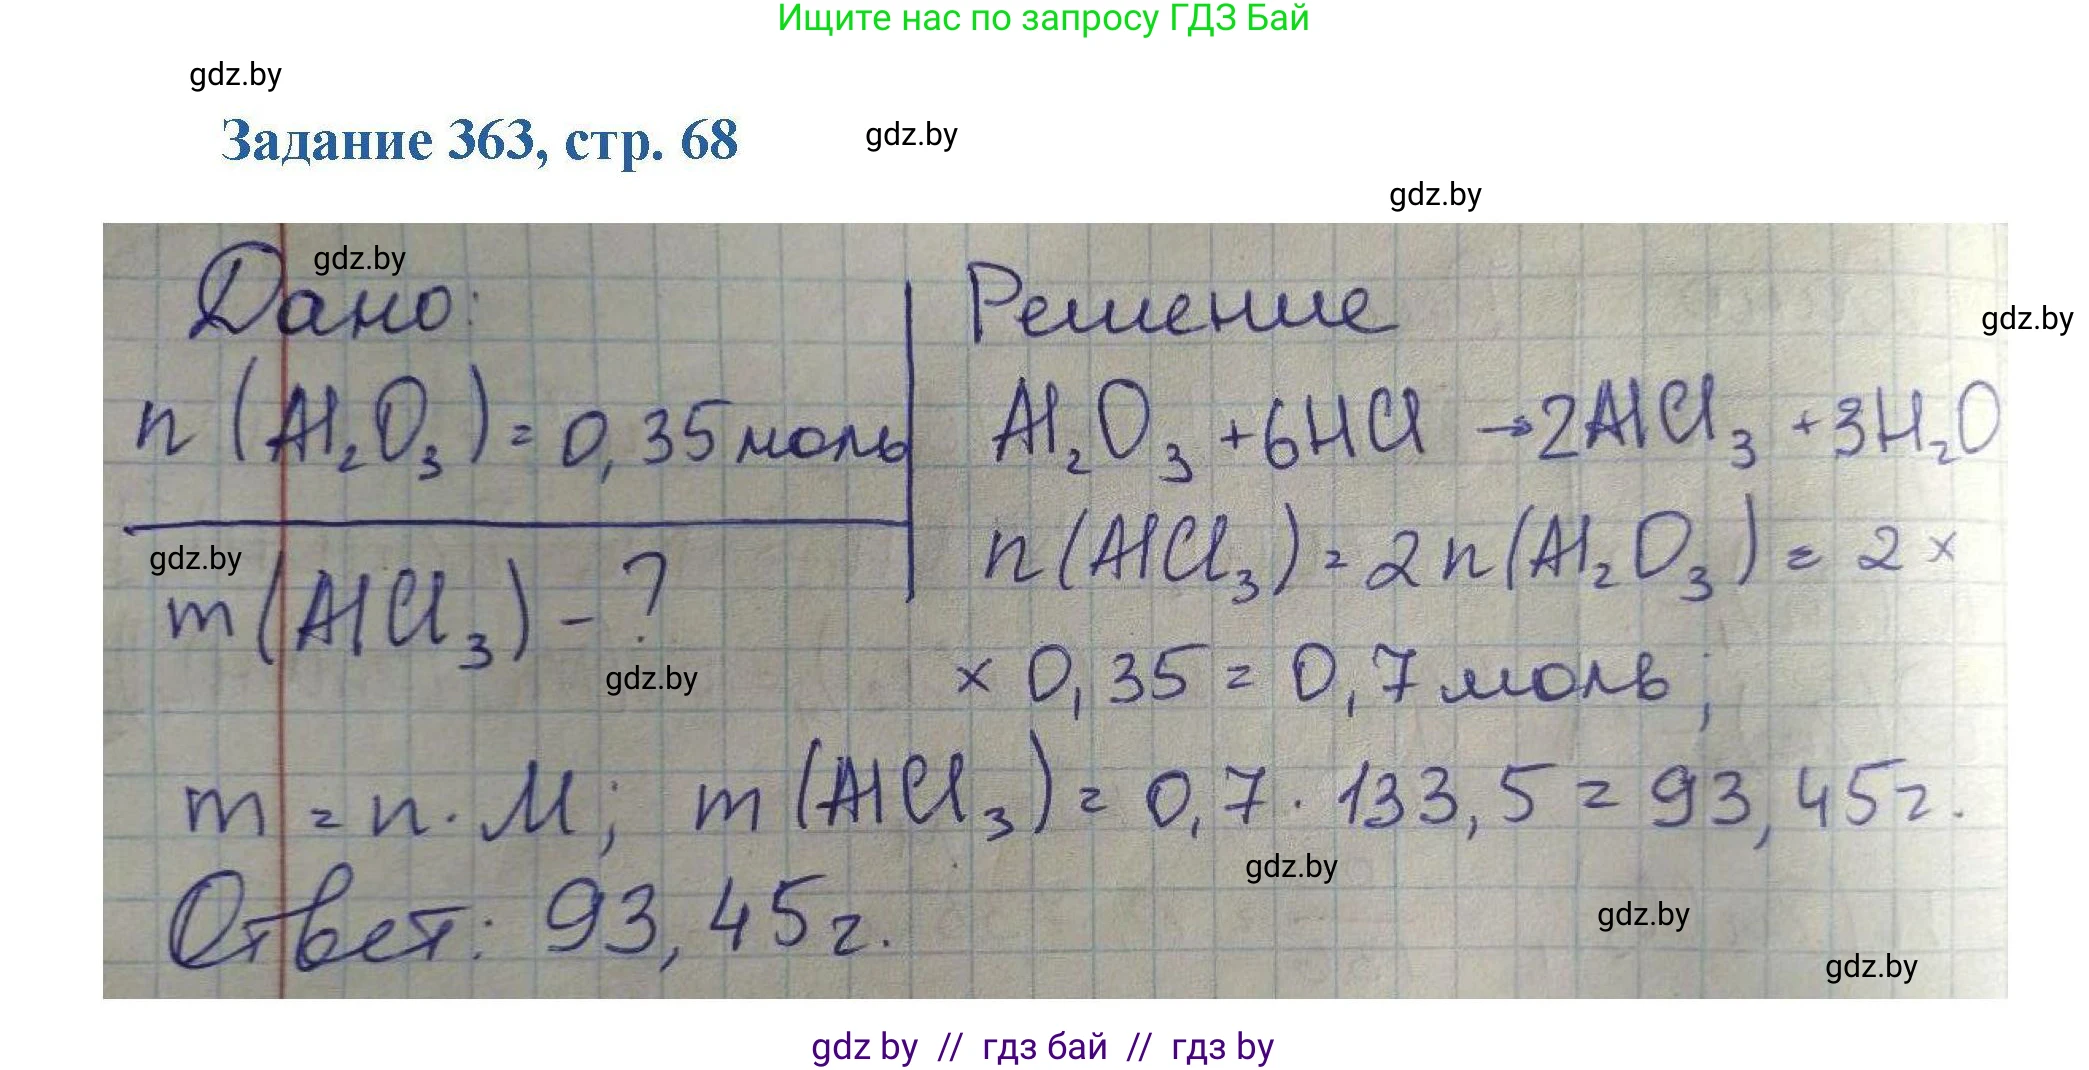 Ищите нас по запросу ГДЗ Бай
gdz.by
Задание 363, стр. 68
gdz.by
gdz.by
gdz.by
Дано:
n (Al₂O₃) = 0,35 моль
gdz.by
m (AlCl₃) - ?
gdz.by
Решение
gdz.by
Al₂O₃ + 6HCl → 2AlCl₃ + 3H₂O
n (AlCl₃) = 2 n (Al₂O₃) = 2 ×
× 0,35 = 0,7 моль;
m = n · M; m (AlCl₃) = 0,7 · 133,5 = 93,45 г.
gdz.by
Ответ: 93,45 г.
gdz.by
gdz.by
gdz by // гдз бай // гдз by